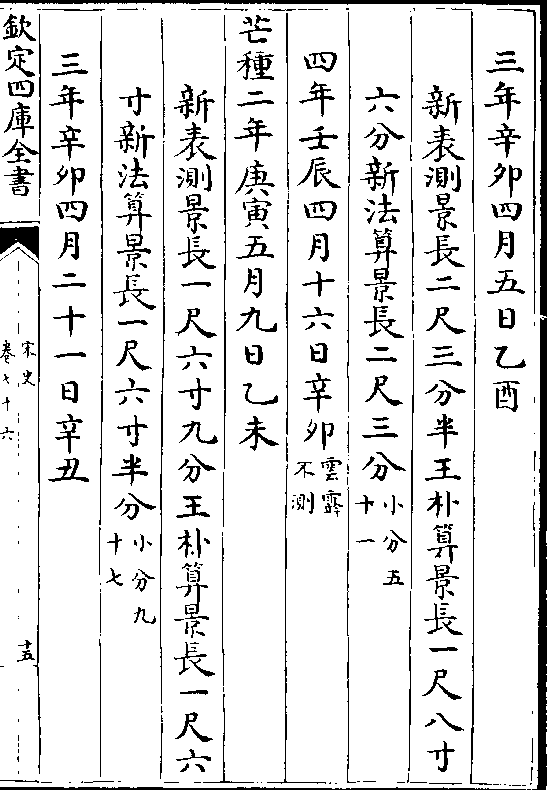 三年辛卯四月五日乙酉
新表測景長二尺三分半王朴算景長一尺八寸
六分新法算景長二尺三分小分五十一
四年壬辰四月十六日辛卯雲霧不測
芒種二年庚寅五月九日乙未
新表測景長一尺六寸九分王朴算景長一尺六
寸新法算景長一尺六寸半分小分九十七
三年辛卯四月二十一日辛丑
欽定四庫全書
宋史
卷七十六
十五